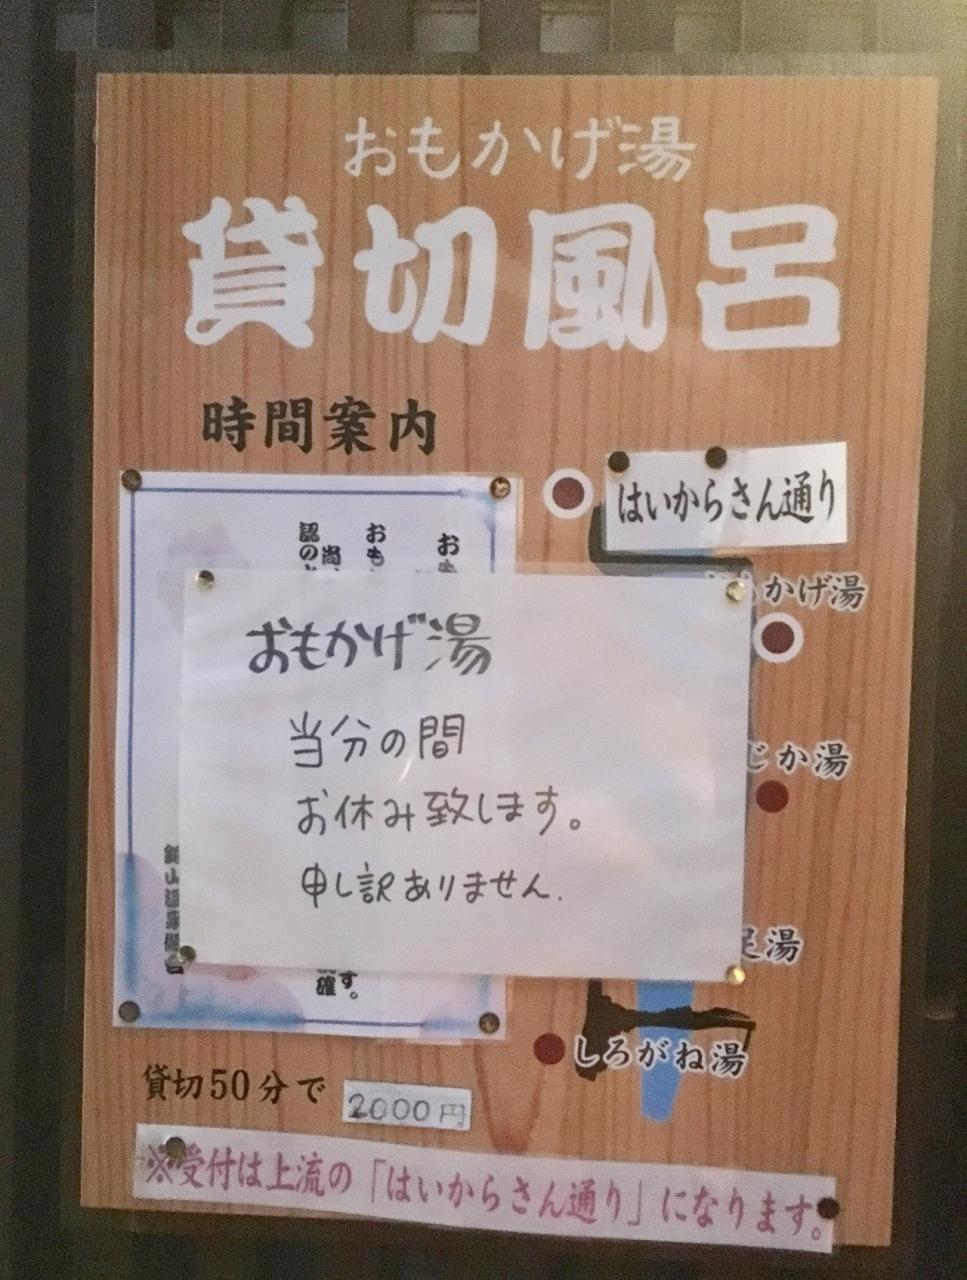 おもかげ湯
貸切風呂
時間案内
はいからさん通り
かげ湯
じか湯
足湯
しろがね湯
おもかげ湯
当分の間
お休み致します。
申し訳ありません.
貸切50分で
2000円
※受付は上流の「はいからさん通り」になります。